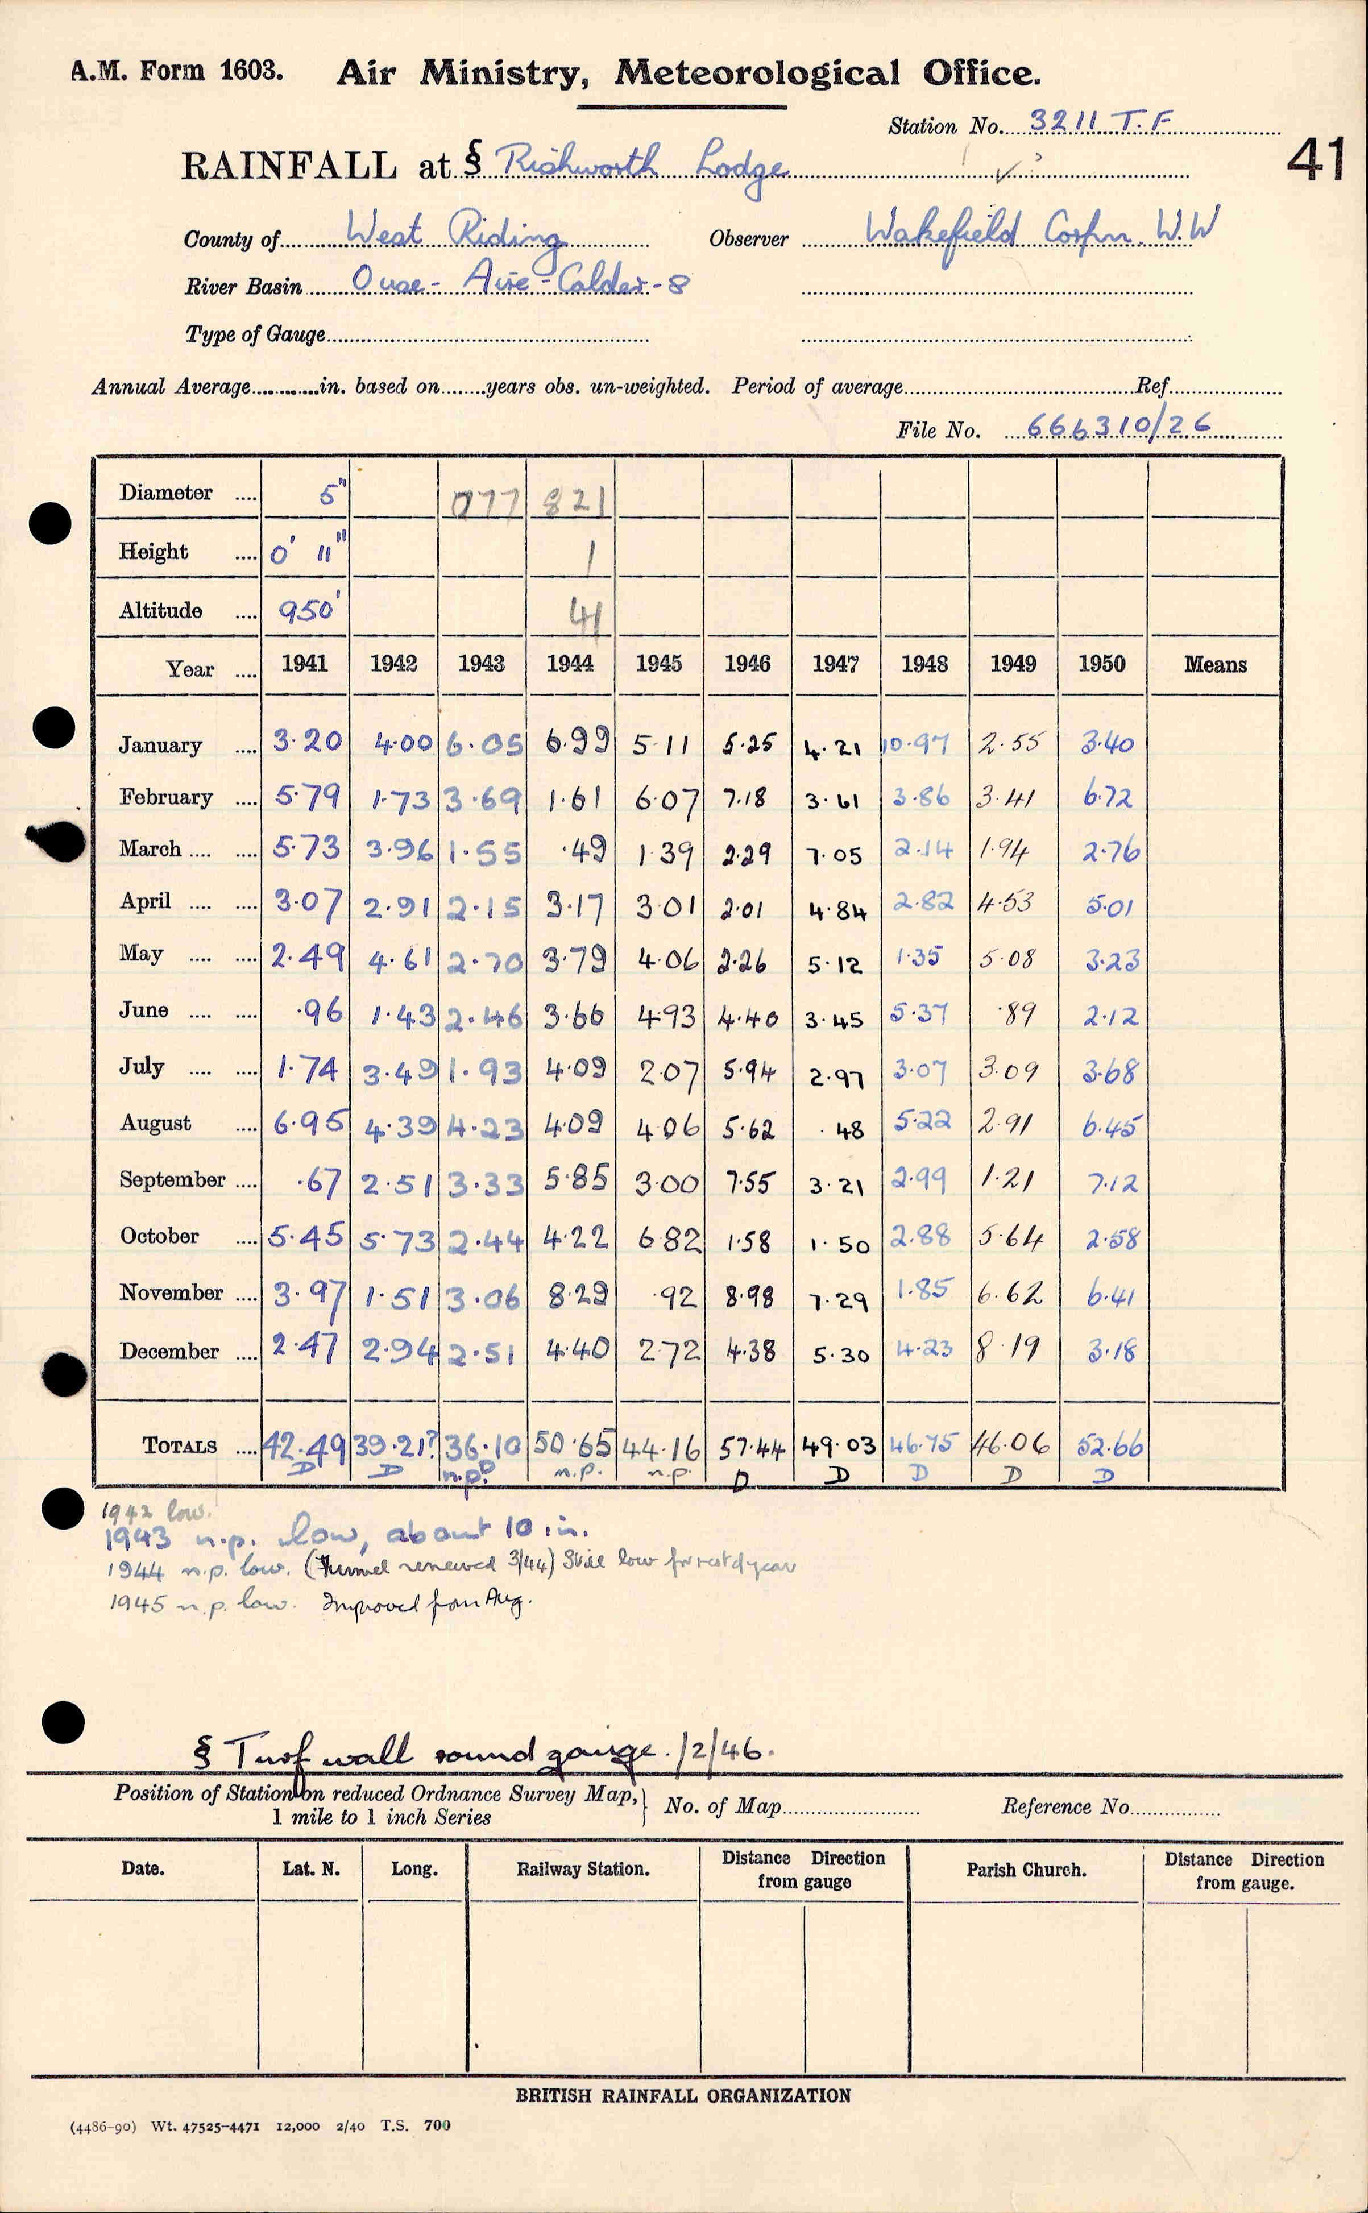 A.M. Form 1603. Air Ministry, Meteorological Office.
Station No. 3211 T.F
41
RAINFALL at § Rishworth Lodge
County of West Riding Observer Wakefield Corpn. W.W
River Basin Ouse - Aire - Calder - 8
Type of Gauge
Annual Average in. based on years obs. un-weighted. Period of average Ref
File No. 666310/26
Diameter 5" 077 821
Height 0' 11" 1
Altitude 950' 41
Year 1941 1942 1943 1944 1945 1946 1947 1948 1949 1950 Means
January 3.20 4.00 6.05 6.99 5.11 5.25 4.21 10.97 2.55 3.40
February 5.79 1.73 3.69 1.61 6.07 7.18 3.61 3.86 3.41 6.72
March 5.73 3.96 1.55 .49 1.39 2.29 7.05 2.14 1.94 2.76
April 3.07 2.91 2.15 3.17 3.01 2.01 4.84 2.82 4.53 5.01
May 2.49 4.61 2.70 3.79 4.06 2.26 5.12 1.35 5.08 3.23
June .96 1.43 2.46 3.66 4.93 4.40 3.45 5.37 .89 2.12
July 1.74 3.49 1.93 4.09 2.07 5.94 2.97 3.07 3.09 3.68
August 6.95 4.39 4.23 4.09 4.06 5.62 .48 5.22 2.91 6.45
September .67 2.51 3.33 5.85 3.00 7.55 3.21 2.99 1.21 7.12
October 5.45 5.73 2.44 4.22 6.82 1.58 1.50 2.88 5.64 2.58
November 3.97 1.51 3.06 8.29 .92 8.98 7.29 1.85 6.62 6.41
December 2.47 2.94 2.51 4.40 2.72 4.38 5.30 4.23 8.19 3.18
TOTALS 42.49 39.21? 36.10 50.65 44.16 57.44 49.03 46.75 46.06 52.66
D D n.p? n.p. n.p. D D D D D
1942 low.
1943 n.p. low, about 10 in.
1944 n.p. low. (Funnel renewed 3/44) Still low for rest of year
1945 n.p. low. Improved from Aug.
§ Turf wall round gauge. /2/46.
Position of Station on reduced Ordnance Survey Map, No. of Map Reference No
1 mile to 1 inch Series
Date. Lat. N. Long. Railway Station. Distance Direction from gauge Parish Church. Distance Direction from gauge.
BRITISH RAINFALL ORGANIZATION
(4486-90) Wt. 47525-4471 12,000 2/40 T.S. 700